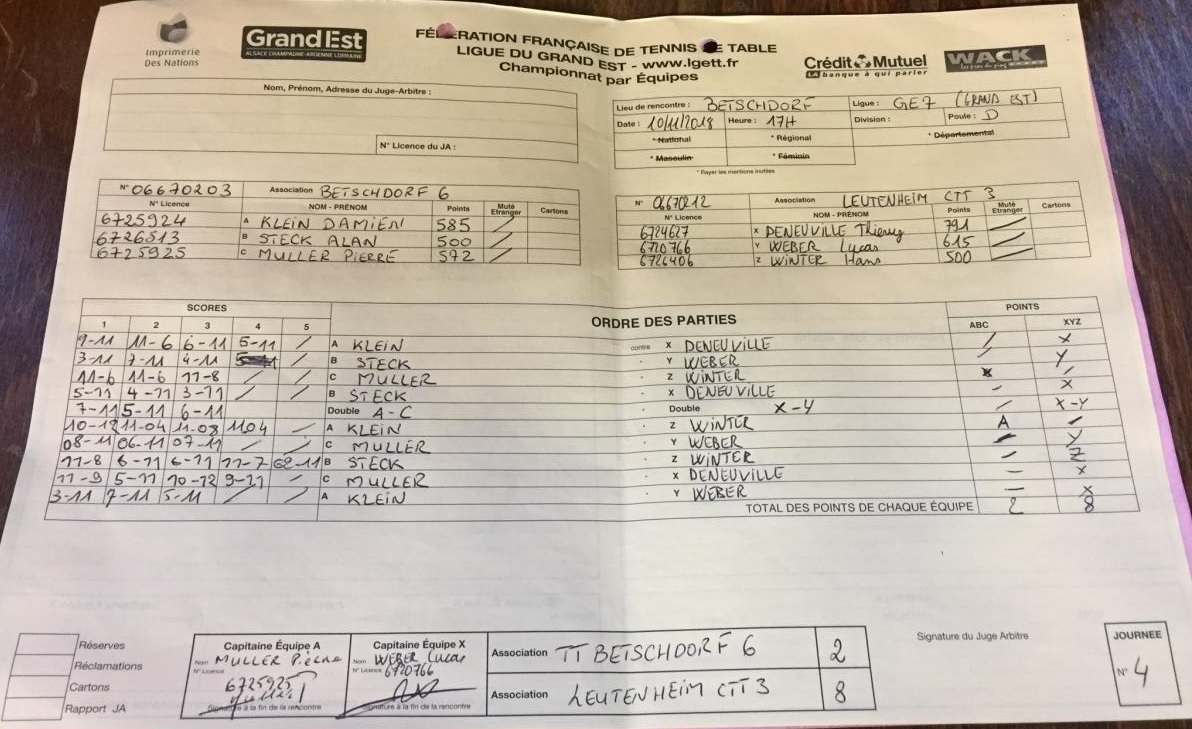 Imprimerie
Des Nations
Grand Est
ALSACE CHAMPAGNE-ARDENNE LORRAINE
FÉDÉRATION FRANÇAISE DE TENNIS DE TABLE
LIGUE DU GRAND EST - www.lgett.fr
Championnat par Équipes
Crédit Mutuel
LA banque à qui parler
WACK
Nom, Prénom, Adresse du Juge-Arbitre :
N° Licence du JA :
Lieu de rencontre : BETSCHDORF Ligue : GE7 (GRAND EST)
Date : 10/11/2018 Heure : 17H Division : Poule : D
* National * Régional * Départemental
* Masculin * Féminin
* Rayer les mentions inutiles
N° 06670203 Association BETSCHDORF 6
N° Licence NOM - PRÉNOM Points Muté Etranger Cartons
6725924 A KLEIN DAMIEN 585
6726513 B STECK ALAN 500
6725925 C MULLER PIERRE 572
N° 06670212 Association LEUTENHEIM CTT 3
N° Licence NOM - PRÉNOM Points Muté Etranger Cartons
6724627 X DENEUVILLE Thierry 791
6720766 Y WEBER Lucas 615
6726406 Z WINTER Hans 500
SCORES ORDRE DES PARTIES POINTS
1 2 3 4 5 ABC XYZ
9-11 11-6 6-11 5-11 / A KLEIN contre X DENEUVILLE / X
3-11 7-11 4-11 / B STECK Y WEBER / Y
11-6 11-6 11-8 / / C MULLER Z WINTER /
5-11 4-11 3-11 / / B STECK X DENEUVILLE - X
7-11 5-11 6-11 Double A-C Double X-Y / X-Y
10-12 11-04 11-08 1104 / A KLEIN Z WINTER A /
08-11 06-11 07-11 / / C MULLER Y WEBER - Y
11-8 6-11 6-11 11-7 02-11 B STECK Z WINTER - Z
11-9 5-11 10-12 9-11 / C MULLER X DENEUVILLE - X
3-11 7-11 5-11 / / A KLEIN Y WEBER - X
TOTAL DES POINTS DE CHAQUE ÉQUIPE 2 8
Réserves
Réclamations
Cartons
Rapport JA
Capitaine Équipe A
Nom MULLER Pierre
N° Licence 6725925
Signature à la fin de la rencontre
Capitaine Équipe X
Nom WEBER Lucas
N° Licence 6720766
Signature à la fin de la rencontre
Association TT BETSCHDORF 6 2
Association LEUTENHEIM CTT 3 8
Signature du Juge Arbitre
JOURNEE
N° 4